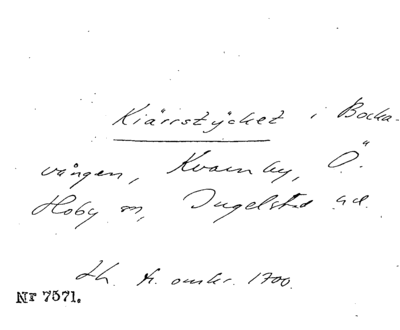 Kiärrstÿcket i Bocka-
vången, Kvarnby, Ö.
Hoby sn, Ingelstad hd.
Hh. fr. omkr. 1700.
Nr 7571.